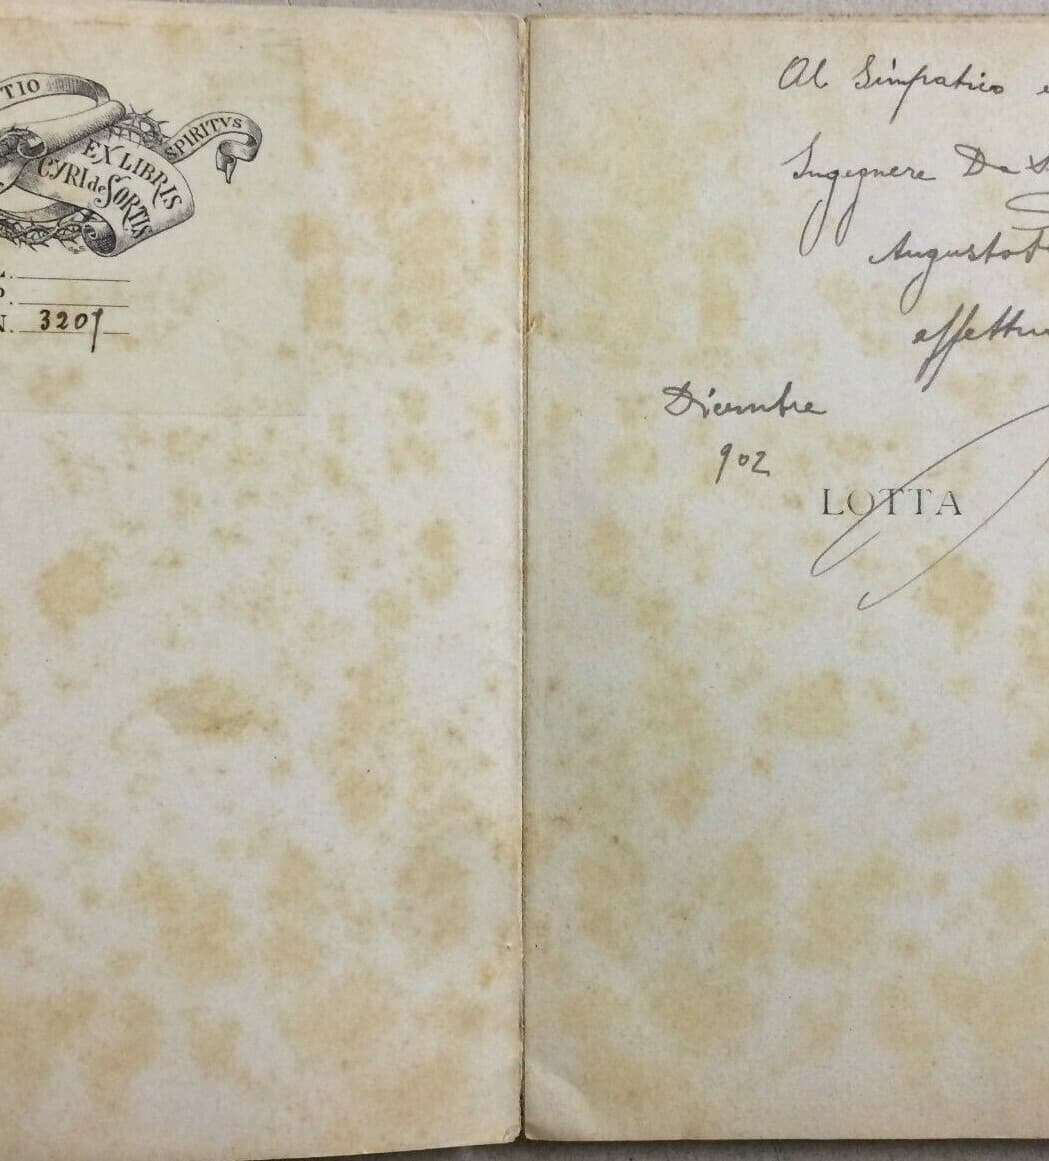 TIO
SPIRITVS
EX LIBRIS
CYRI de SORTIS
N. 3207
Al Simpatico e
Ingegnere Da S
Augusto
affettu
Dicembre
902
LOTTA